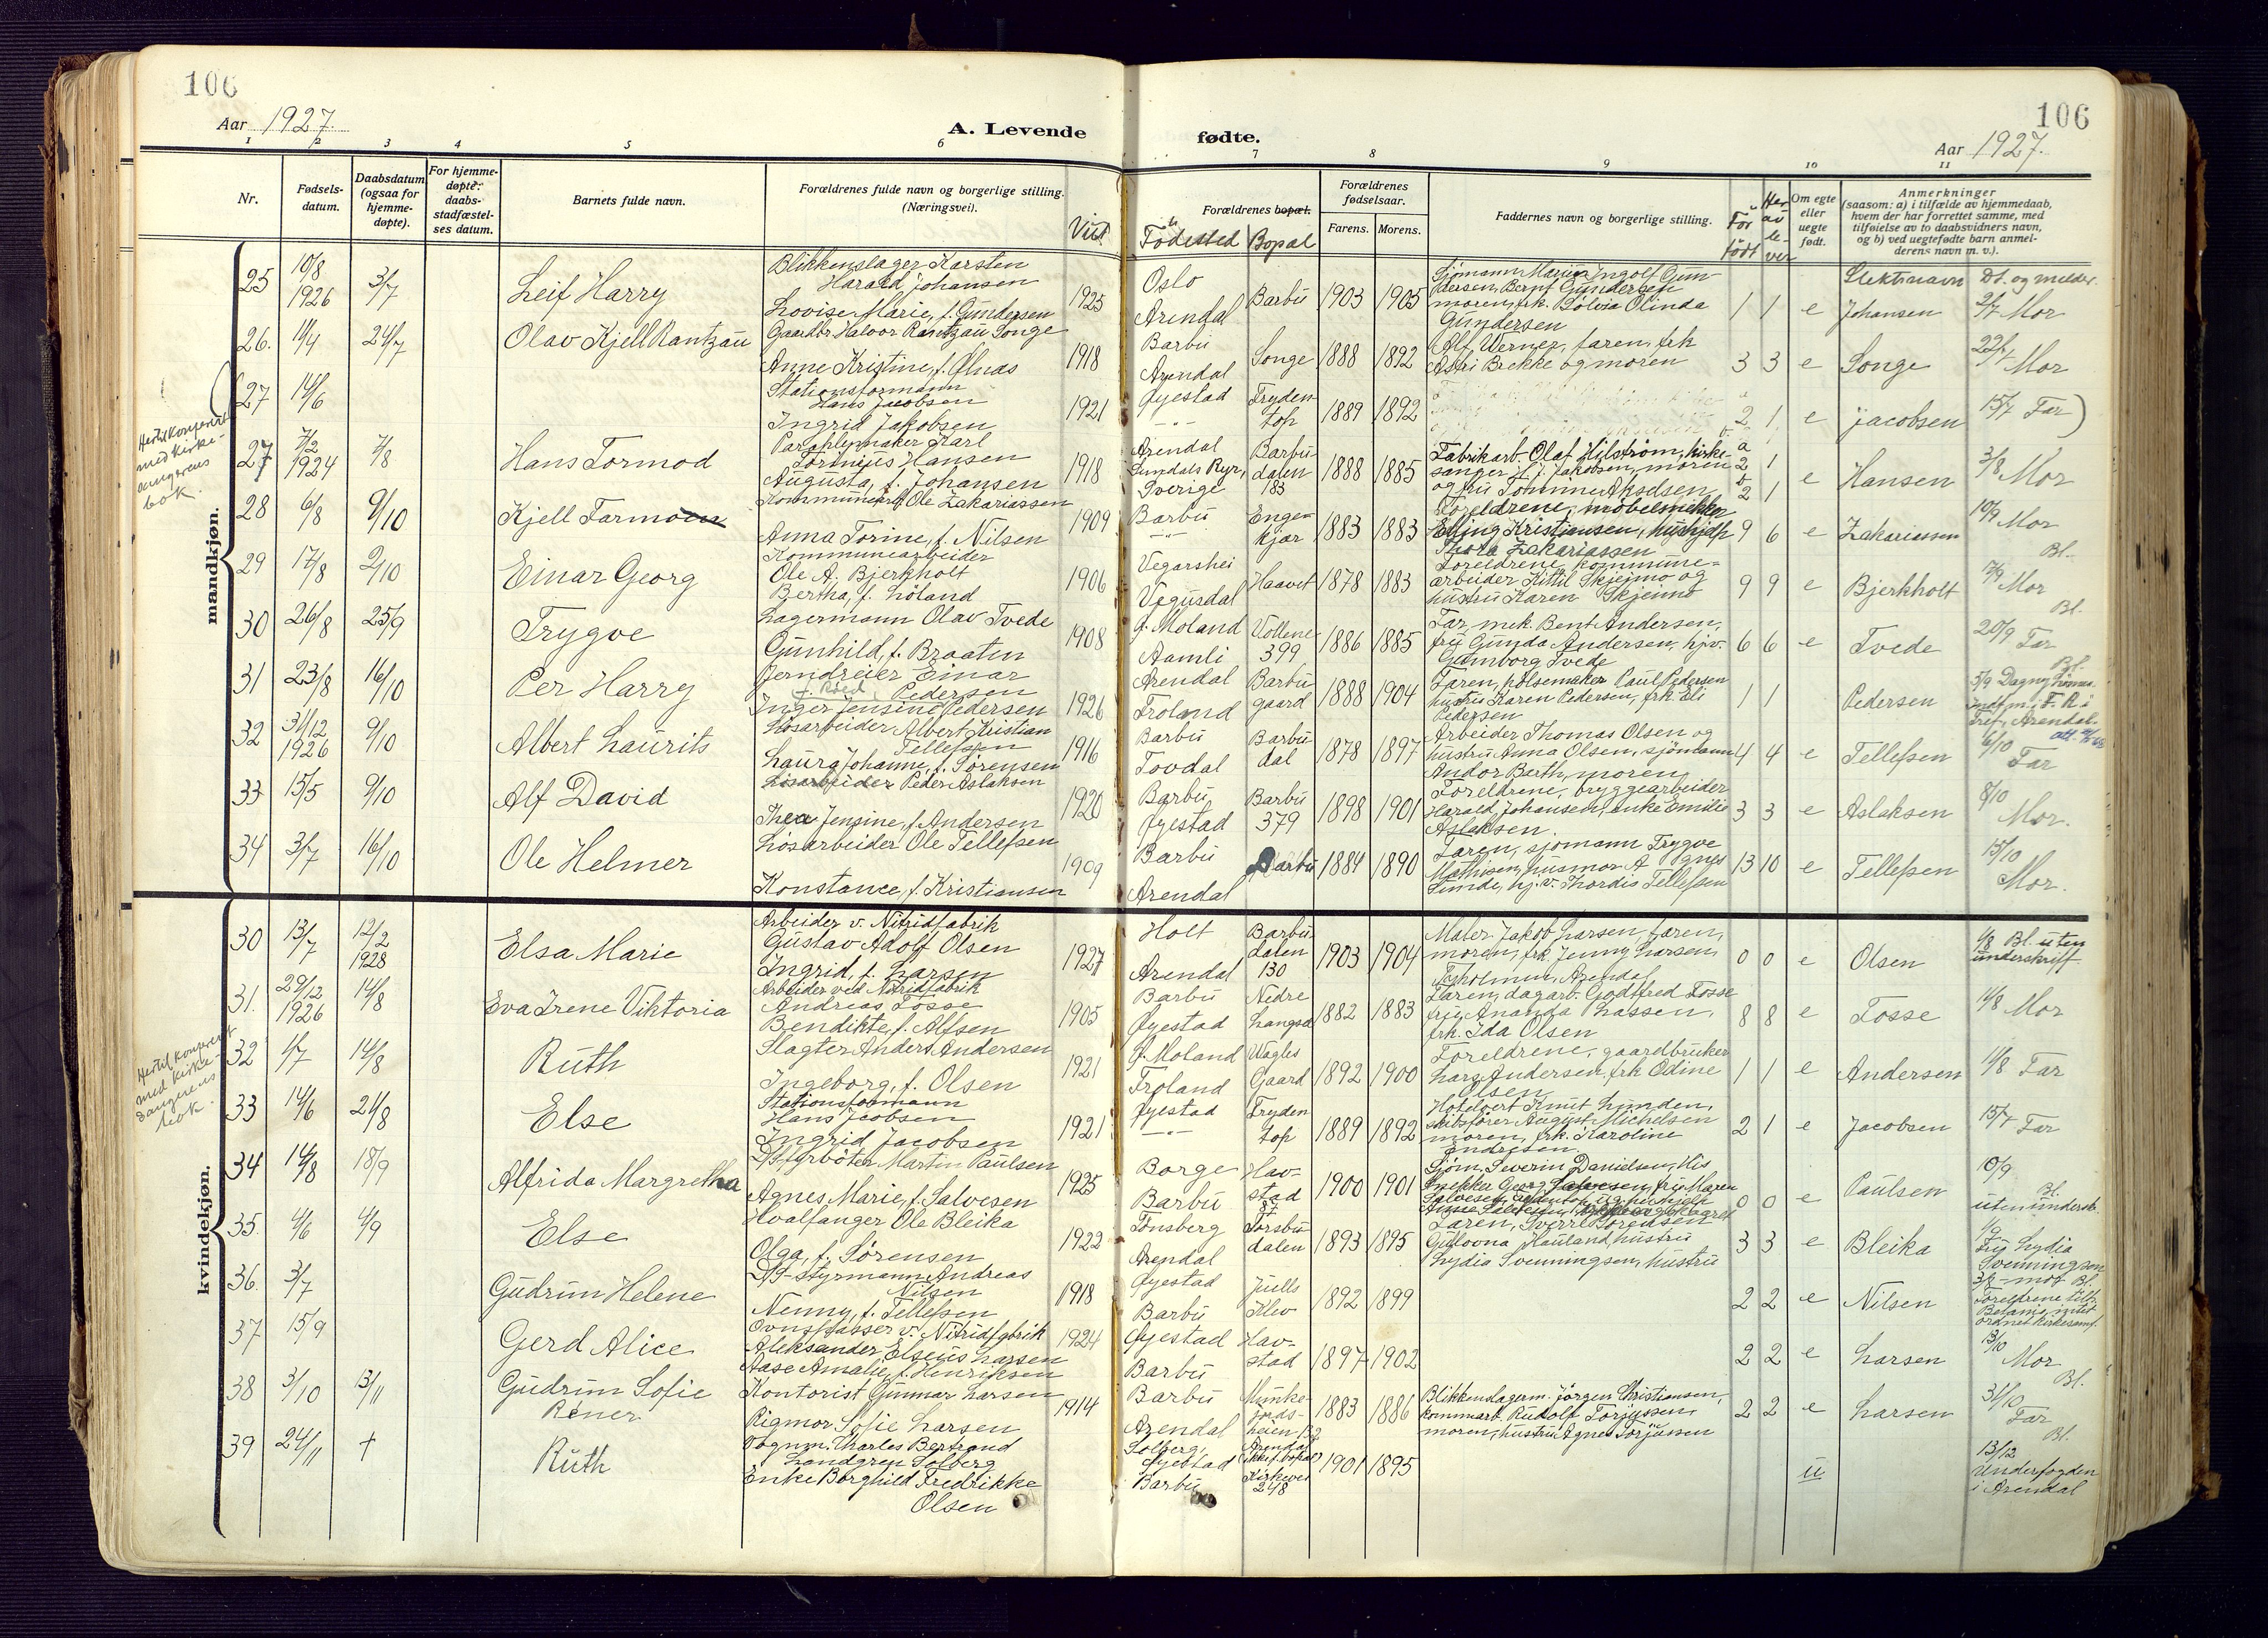 106
Aar 1927.
A. Levende
fødte.
106
Aar 1927.
1 2 3 4 5 6 7 8 9 10 11
Nr.
Fødsels-
datum.
Daabsdatum
(ogsaa for
hjemme-
døpte).
For hjemme-
døpte:
daabs-
stadfæstel-
ses datum.
Barnets fulde navn.
Forældrenes fulde navn og borgerlige stilling.
(Næringsvei).
Viet
Forældrenes bopæl.
Fødested Bopæl
Forældrenes
fødselsaar.
Farens. Morens.
Faddernes navn og borgerlige stilling.
Før
født
Her
av
le-
ver
Om egte
eller
uegte
født.
Anmerkninger
(saasom: a) i tilfælde av hjemmedaab,
hvem der har forrettet samme, med
tilføielse av to daabsvidners navn,
og b) ved uegtefødte barn anmel-
derens navn m. v.).
Slektsnavn Dt. og melder.
mandkjøn.
25 10/8 1926 3/7 Leif Harry
Blikkenslager Karsten
Harald Johansen
Lovise Marie, f. Gundersen
1925
Oslo
Arendal
Barbu 1903 1905
Sjømann Marius Ingolf Gun-
dersen, Bernt Gundersen
moren, frk. Solvia Olinda
Gundersen
1 1 e Johansen 2/7 Mor
26. 11/4 24/7 Olav Kjell Rantzau
Gaardbr. Halvor Rantzau Songe
Anne Kristine, f. Ølnas
1918
Barbu
Arendal
Songe 1888 1892
Alf Werner, faren, frk
Astri Brekke og moren
3 3 e Songe 22/7 Mor
27 14/6
Stationsformann
Hans Jacobsen
Ingrid Jakobsen
1921
Øyestad
-"-
Fryden-
top
1889 1892
2 1 e Jacobsen 15/7 Far)
Hertil konferert
med kirke-
sangerens
bok.
27 7/2 1924 7/8 Hans Tormod
Paraplymaker Karl
Torinius Hansen
Augusta, f. Johansen
1918
Arendal
Sverige
Barbu
dalen
183
1888 1885
Fabrikarb. Olaf Hilstrøm, kirke-
sanger H. J. Jakobsen, moren
og fru Tomine Akselsen
a 2 1
b 2 1
e Hansen 3/8 Mor
28 6/8 9/10 Kjell Tarmoen
Kommunearb. Ole Zakariassen
Anna Torine, f. Nilsen
1909
Barbu
-"-
Enge-
kjær
1883 1883
Foreldrene, møbelsnekker
Elling Kristiansen, hushjelp
Thora Zakariassen
9 6 e Zakariassen 10/9 Mor
Bl.
29 17/8 2/10 Einar Georg
Kommunearbeider
Ole A. Bjerkholt
Bertha, f. Løland
1906
Vegarshei
Vegusdal
Haavet 1878 1883
Foreldrene, kommune-
arbeider Kittil Skjeimo og
hustru Karen Skjeimo
9 9 e Bjerkholt 17/9 Mor
Bl.
30 26/8 25/9 Trygve
Lagermann Olav Tvede
Gunhild, f. Braaten
1908
Ø. Moland
Aamli
Vollene
399
1886 1885
Far, mek. Bent Andersen,
fru Gunda Andersen, hjv.
Gunborg Tvede
6 6 e Tvede 20/9 Far
Bl.
31 23/8 16/10 Per Harry
Jerndreier Einar
f. Røed Pedersen
Inger Jensine Pedersen
1926
Arendal
Froland
Barbu
gaard
1888 1904
Faren, pølsemaker Paul Pedersen
hustru Karen Pedersen, frk Eli
Pedersen
1 1 Pedersen 5/9 Dagny
Arendal
32 31/12 1926 9/10 Albert Laurits
Løsarbeider Albert Kristian
Tellefsen
Laura Johanne, f. Sørensen
1916
Barbu
Tovdal
Barbu
dal
1878 1897
Arbeider Thomas Olsen og
hustru Anna Olsen, sjømann
Andor Barth, moren
4 4 e Tellefsen 6/10 Far
33 15/5 9/10 Alf David
Løsarbeider Peder Aslaksen
Thea Jensine, f. Andersen
1920
Barbu
Øyestad
Barbu
379
1898 1901
Foreldrene, bryggearbeider
Harald Johansen, enke Emilie
Aslaksen.
3 3 e Aslaksen 8/10 Mor.
34 3/7 16/10 Ole Helmer
Løsarbeider Ole Tellefsen
Konstance, f. Kristiansen
1909
Barbu
Arendal
Barbu 1884 1890
Faren, sjømann Trygve
Mathisen, husmor Agnes
Sunde, hj.v. Thordis Tellefsen
13 10 e Tellefsen 15/10 Mor.
kvindekjøn.
30 13/7 12/2 1928 Elsa Marie
Arbeider v. Nitridfabrik
Gustav Adolf Olsen
Ingrid, f. Larsen
1927
Holt
Arendal
Barbu
dalen
130
1903 1904
Maler Jakob Larsen, faren,
moren, frk. Jenny Larsen,
Arendal
0 0 e Olsen 1/8 Bl. uten
underskrift
31. 29/12 1926 14/8 Eva Irene Viktoria
Arbeider ved Nitridfabrik
Andreas Fosse
Bendikte, f. Alfsen
1905
Barbu
Øyestad
Nedre
Langsæ
1882 1883
Faren, dagarb. Godtfred Fosse
fru Ananda Lassen,
frk. Ida Olsen
8 8 e Fosse 14/8 Mor
Hertil konferert
med kirke-
sangerens
bok.
32 1/7 14/8 Ruth
Slagter Anders Andersen
Ingeborg, f. Olsen
1921
Ø. Moland
Froland
Wagles
Gaard
1892 1900
Foreldrene, gaardbruker
Lars Andersen, frk Odine
Olsen
1 1 e Andersen 11/8 Far
33 14/6 21/8 Else
Stationsformann
Hans Jacobsen
Ingrid Jacobsen
1921
Øyestad
-"-
Fryden
top
1889 1892
Hotelvert Knut Lunden,
skibsfører August Michelsen
moren, frk. Karoline
Endresen
2 1 e Jacobsen 15/7 Far
34 14/8 18/9 Alfrida Margretha
D/S fyrbøter Martin Paulsen
Agnes Marie, f. Salvesen
1925
Borge
Barbu
Hav-
stad
87
1900 1901
Sjøm. Severin Danielsen,
snekker Georg Salvesen, fru Maren
Salvesen
0 0 e Paulsen 10/9
Bl.
uten undersk.
35. 4/6 4/9 Else
Hvalfanger Ole Bleika
Olga, f. Sørensen
1922
Tønsberg
Arendal
Torsbu
dalen
1893 1895
Faren, Sverre Sørensen
Gullovna Hauland, hustru
Lydia Svenningsen, hustru
3 3 e Bleika 1/9
Fru Lydia
Svenningsen
36. 3/7 Gudrun Helene
D/S-Styrmann Andreas
Nilsen
Nenny, f. Tellefsen
1918
Øyestad
Barbu
Juells
Klev
1892 1899
2 2 e Nilsen
Foreldrene tilh.
Betania, intet
ordnet kirkesamf.
37. 15/9 Gerd Alice
Ovnspasser v. Nitridfabrik
Aleksander Elseus Larsen
Aase Amalie, f. Henriksen
1924
Øyestad
Barbu
Hav-
stad
1897 1902
2 2 e Larsen 13/10 Mor
Bl.
38 3/10 13/11 Gudrun Sofie
Rener
Kontorist Gunnar Larsen
Rigmor Sofie Larsen
1914
Barbu
Arendal
Munke-
jords-
heien 132
1883 1886
Blikkenslagerm. Jørgen Christiansen,
kommarb. Rudolf Torjussen,
moren, hustru Agnes Torjussen
2 2 e Larsen 31/10
Far
Bl.
39 24/11 † Ruth
Vognm. Charles Bertrand
Landgren Solberg
Enke Borghild Fredrikke
Olsen
Solberg,
Øyestad
Barbu
Arendal
Kirkevei
248
1901 1895
u 13/12
Underfogden
i Arendal